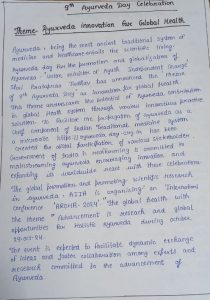 9th Ayurveda Day Celebration
Theme- Ayurveda innovation for Global Health
Ayurveda, being the most ancient traditional system of
medicine and healthcare entails the scientific living.
Ayurveda day for the promotion and globalization of
Ayurveda. Union minister of Ayush Independent Charge
Shri Prataprao Jadhav has announced the theme
of 9th Ayurveda Day as 'innovation for global health.
This theme enumerates the potential of Ayurveda contribution
in global Health system through various innovative proactive
solution. To facilitate the propagation of ayurveda as a
chief component of Indian Traditional medicine system
a microsite https // ayurveda day . in has been
created the global participation of various stakeholder.
Government of India is is committed to
mainstreaming Ayurveda encouraging innovation and
expanding its worldwide reach with these celebrations.
The global promotion and promoting scientific research
in Ayurveda. AIIA is organising an 'International
conference 'AROHA-2024' "the global health with
the theme "Advancement is research and global
opportunities for Holistic Ayurveda during october
19-oct-24.
The event is expected to facilitate dynamic exchange
of ideas and foster collaboration among experts and
research committed to the advancement of
Ayurveda.